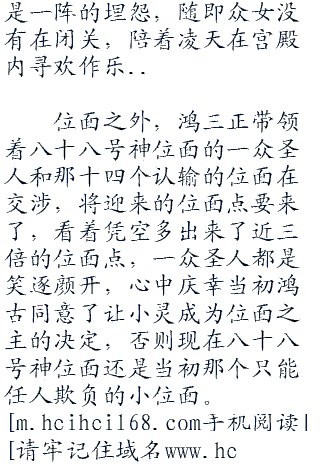 是一阵的埋怨，随即众女没
有在闭关，陪着凌天在宫殿
内寻欢作乐..
位面之外，鸿三正带领
着八十八号神位面的一众圣
人和那十四个认输的位面在
交涉，将迎来的位面点要来
了，看着凭空多出来了近三
倍的位面点，一众圣人都是
笑逐颜开，心中庆幸当初鸿
古同意了让小灵成为位面之
主的决定，否则现在八十八
号神位面还是当初那个只能
任人欺负的小位面。
[m.hcihci168.com手机阅读|
[请牢记住域名www.hc